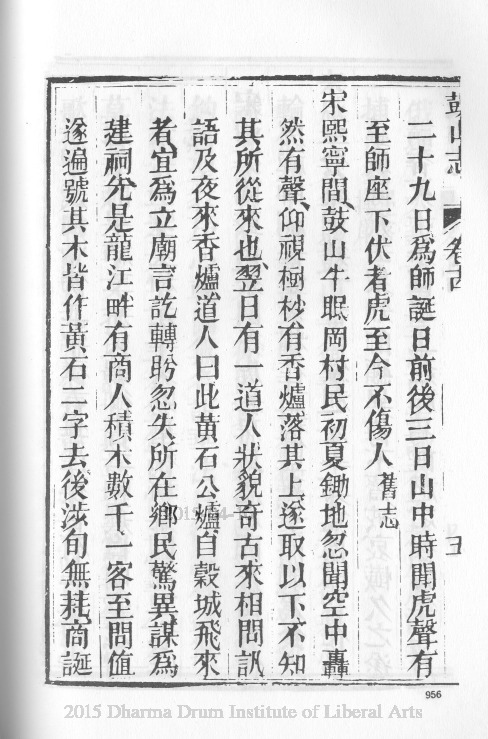 鼓山志
卷古
五
二十九日爲師誕日前後三日山中時聞虎聲有
至師座下伏者虎至今不傷人舊志
宋熙寧間鼓山牛眠岡村民初夏鋤地忽聞空中轟
然有聲仰視樹杪有香爐落其上遂取以下不知
其所從來也翌日有一道人狀貌奇古來相問訊
語及夜來香爐道人曰此黄石公爐自穀城飛來
者宜爲立廟言訖轉盻忽失所在鄉民驚異謀爲
建祠先是龍江畔有商人積木數千一客至問值
遂遍號其木皆作黃石二字去後涉旬無耗商誕
956
2015 Dharma Drum Institute of Liberal Arts